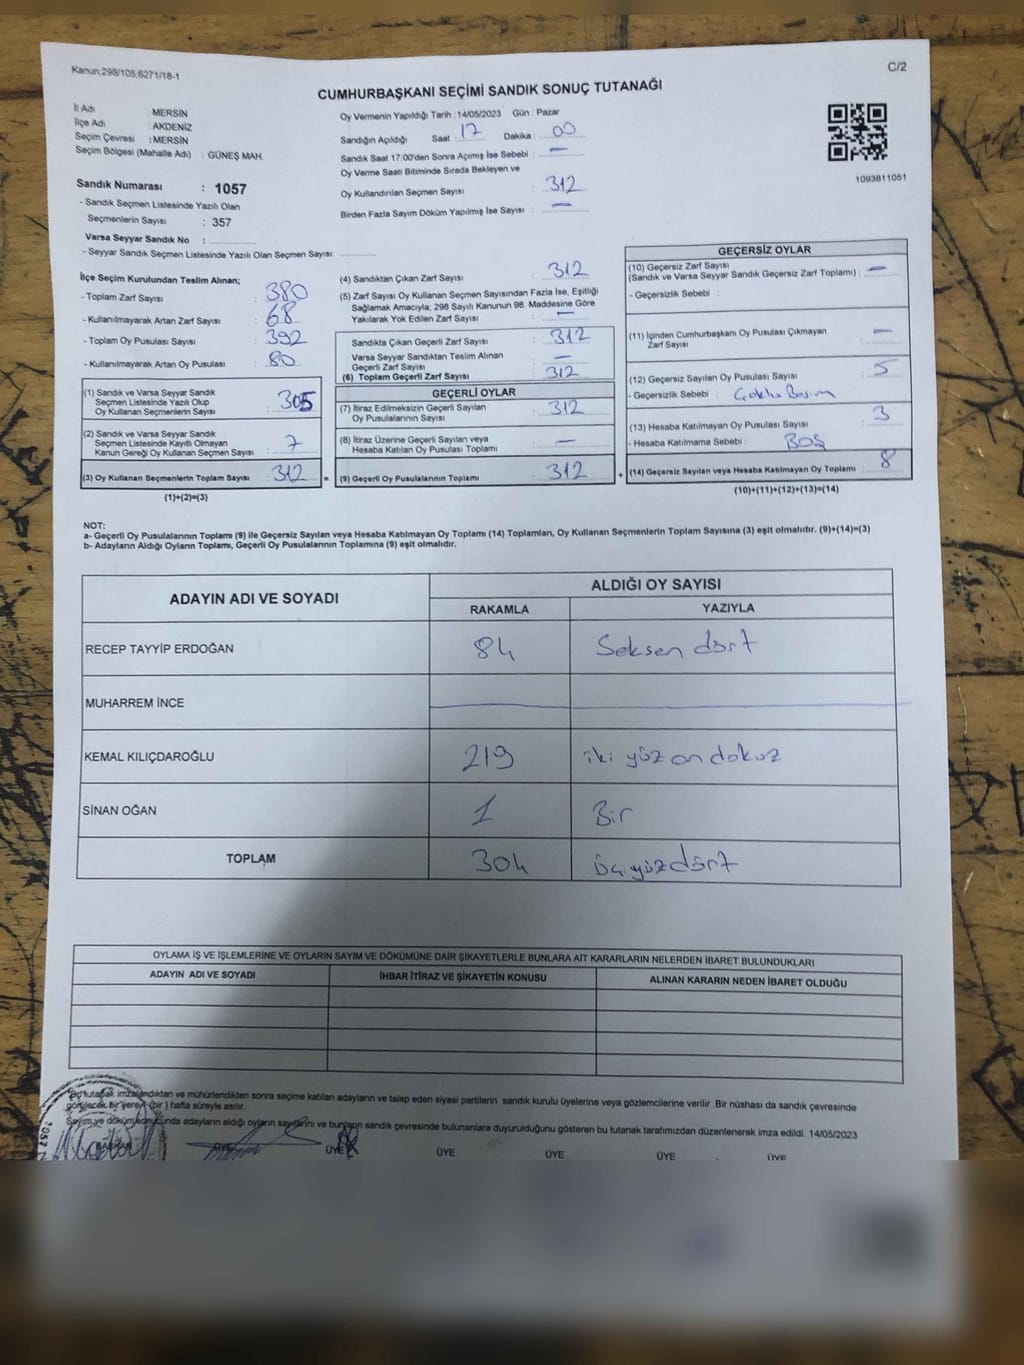 Kanun;298/105;6271/18-1
C/2
CUMHURBAŞKANI SEÇİMİ SANDIK SONUÇ TUTANAĞI
İl Adı : MERSİN
İlçe Adı : AKDENİZ
Seçim Çevresi : MERSİN
Seçim Bölgesi (Mahalle Adı) : GÜNEŞ MAH.
Sandık Numarası : 1057
- Sandık Seçmen Listesinde Yazılı Olan
Seçmenlerin Sayısı : 357
Varsa Seyyar Sandık No :
- Seyyar Sandık Seçmen Listesinde Yazılı Olan Seçmen Sayısı:
Oy Vermenin Yapıldığı Tarih : 14/05/2023 Gün : Pazar
Sandığın Açıldığı Saat : 17 Dakika : 00
Sandık Saat 17:00'den Sonra Açımış İse Sebebi : —
Oy Verme Saati Bitiminde Sırada Bekleyen ve
Oy Kullandırılan Seçmen Sayısı : 312
Birden Fazla Sayım Döküm Yapılmış İse Sayısı : —
1093811051
İlçe Seçim Kurulundan Teslim Alınan;
- Toplam Zarf Sayısı : 380
- Kullanılmayarak Artan Zarf Sayısı : 68
- Toplam Oy Pusulası Sayısı : 392
- Kullanılmayarak Artan Oy Pusulası : 80
(1) Sandık ve Varsa Seyyar Sandık
Seçmen Listesinde Yazılı Olup
Oy Kullanan Seçmenlerin Sayısı : 305
(2) Sandık ve Varsa Seyyar Sandık
Seçmen Listesinde Kayıtlı Olmayan
Kanun Gereği Oy Kullanan Seçmen Sayısı : 7
(3) Oy Kullanan Seçmenlerin Toplam Sayısı : 312
(1)+(2)=(3)
(4) Sandıktan Çıkan Zarf Sayısı : 312
(5) Zarf Sayısı Oy Kullanan Seçmen Sayısından Fazla İse, Eşitliği
Sağlamak Amacıyla; 298 Sayılı Kanunun 98. Maddesine Göre
Yakılarak Yok Edilen Zarf Sayısı : —
Sandıkta Çıkan Geçerli Zarf Sayısı : 312
Varsa Seyyar Sandıktan Teslim Alınan
Geçerli Zarf Sayısı : —
(6) Toplam Geçerli Zarf Sayısı : 312
GEÇERLİ OYLAR
(7) İtiraz Edilmeksizin Geçerli Sayılan
Oy Pusulalarının Sayısı : 312
(8) İtiraz Üzerine Geçerli Sayılan veya
Hesaba Katılan Oy Pusulası Toplamı : —
= (9) Geçerli Oy Pusulalarının Toplamı : 312 +
GEÇERSİZ OYLAR
(10) Geçersiz Zarf Sayısı
(Sandık ve Varsa Seyyar Sandık Geçersiz Zarf Toplamı) : —
- Geçersizlik Sebebi :
(11) İçinden Cumhurbaşkanı Oy Pusulası Çıkmayan
Zarf Sayısı : —
(12) Geçersiz Sayılan Oy Pusulası Sayısı : 5
- Geçersizlik Sebebi :
(13) Hesaba Katılmayan Oy Pusulası Sayısı : 3
- Hesaba Katılmama Sebebi : BOŞ
(14) Geçersiz Sayılan veya Hesaba Katılmayan Oy Toplamı : 8
(10)+(11)+(12)+(13)=(14)
NOT:
a- Geçerli Oy Pusulalarının Toplamı (9) ile Geçersiz Sayılan veya Hesaba Katılmayan Oy Toplamı (14) Toplamları, Oy Kullanan Seçmenlerin Toplam Sayısına (3) eşit olmalıdır. (9)+(14)=(3)
b- Adayların Aldığı Oyların Toplamı, Geçerli Oy Pusulalarının Toplamına (9) eşit olmalıdır.
ADAYIN ADI VE SOYADI
ALDIĞI OY SAYISI
RAKAMLA YAZIYLA
RECEP TAYYİP ERDOĞAN 84 Seksen dört
MUHARREM İNCE
KEMAL KILIÇDAROĞLU 219 iki yüz on dokuz
SİNAN OĞAN 1 Bir
TOPLAM 304 üçyüzdört
OYLAMA İŞ VE İŞLEMLERİNE VE OYLARIN SAYIM VE DÖKÜMÜNE DAİR ŞİKAYETLERLE BUNLARA AİT KARARLARIN NELERDEN İBARET BULUNDUKLARI
ADAYIN ADI VE SOYADI İHBAR İTİRAZ VE ŞİKAYETİN KONUSU ALINAN KARARIN NEDEN İBARET OLDUĞU
Bu tutanak imzalandıktan ve mühürlendikten sonra seçime katılan adayların ve talep eden siyasi partilerin sandık kurulu üyelerine veya gözlemcilerine verilir .Bir nüshası da sandık çevresinde
görülecek bir yere 1 (bir ) hafta süreyle asılır.
Sayım ve döküm sonucunda adayların aldığı oyların sayılarını ve bunların sandık çevresinde bulunanlara duyurulduğunu gösteren bu tutanak tarafımızdan düzenlenerek imza edildi. 14/05/2023
BAŞKAN ÜYE ÜYE ÜYE ÜYE ÜYE ÜYE